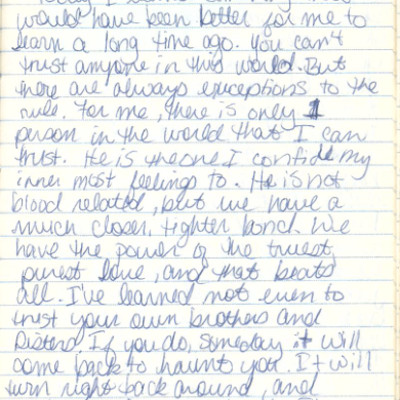 would have been better for me to
learn a long time ago. You can't
trust anyone in this world. But
there are always exceptions to the
rule. For me, there is only 1
person in the world that I can
trust. He is the one I confide my
inner most feelings to. He is not
blood related, but we have a
much closer, tighter bond. We
have the power of the truest,
purest love, and that beats
all. I've learned not even to
trust your own brothers and
sisters. If you do, someday it will
come back to haunt you. It will
turn right back around, and